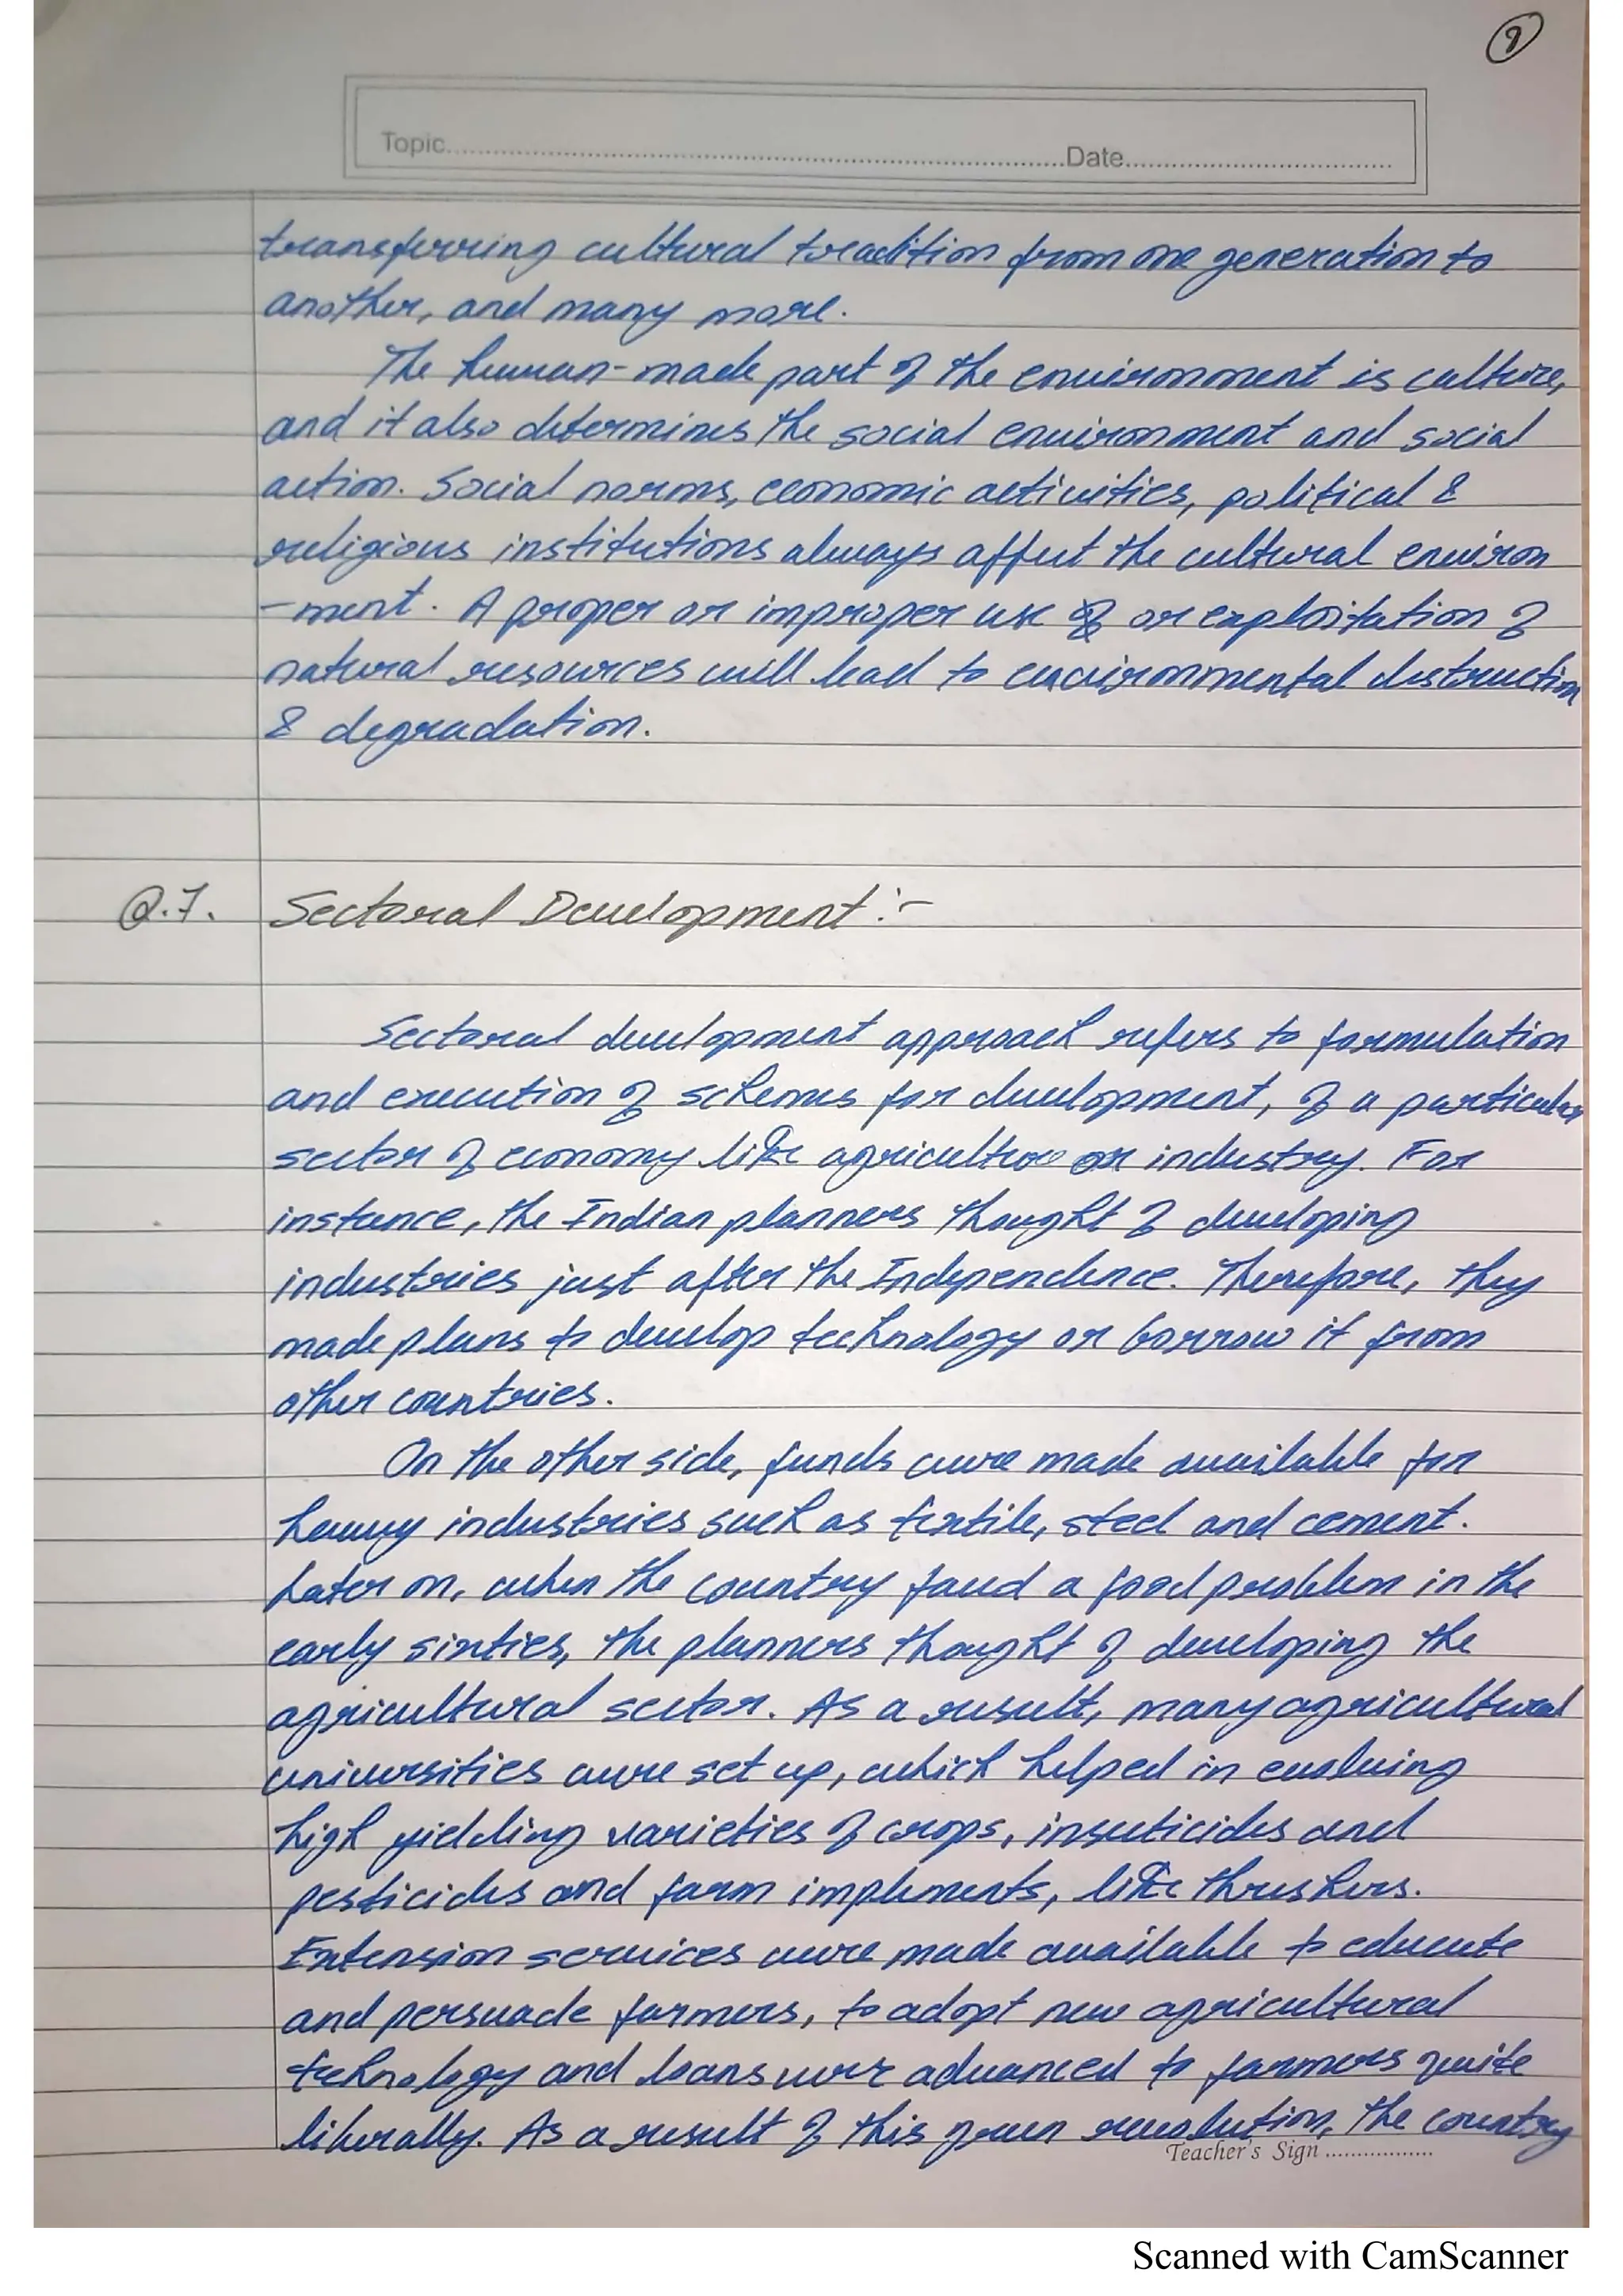 9
Topic..........Date..........
transferring cultural tradition from one generation to
another, and many more.
The human-made part of the environment is culture,
and it also determines the social environment and social
action. Social norms, economic activities, political &
religious institutions always affect the cultural environ
-ment. A proper or improper use of or exploitation of
natural resources will lead to environmental destruction
& degradation.
Q.7. Sectoral Development:-
Sectoral development approach refers to formulation
and execution of schemes for development, of a particular
sector of economy like agriculture or industry. For
instance, the Indian planners thought of developing
industries just after the Independence. Therefore, they
made plans to develop technology or borrow it from
other countries.
On the other side, funds were made available for
heavy industries such as textile, steel and cement.
Later on, when the country faced a food problem in the
early sixties, the planners thought of developing the
agricultural sector. As a result, many agricultural
universities were set up, which helped in evolving
high yielding varieties of crops, insecticides and
pesticides and farm implements, like threshers.
Extension services were made available to educate
and persuade farmers, to adopt new agricultural
technology and loans were advanced to farmers quite
liberally. As a result of this green revolution, the country
Teacher's Sign ..................
Scanned with CamScanner